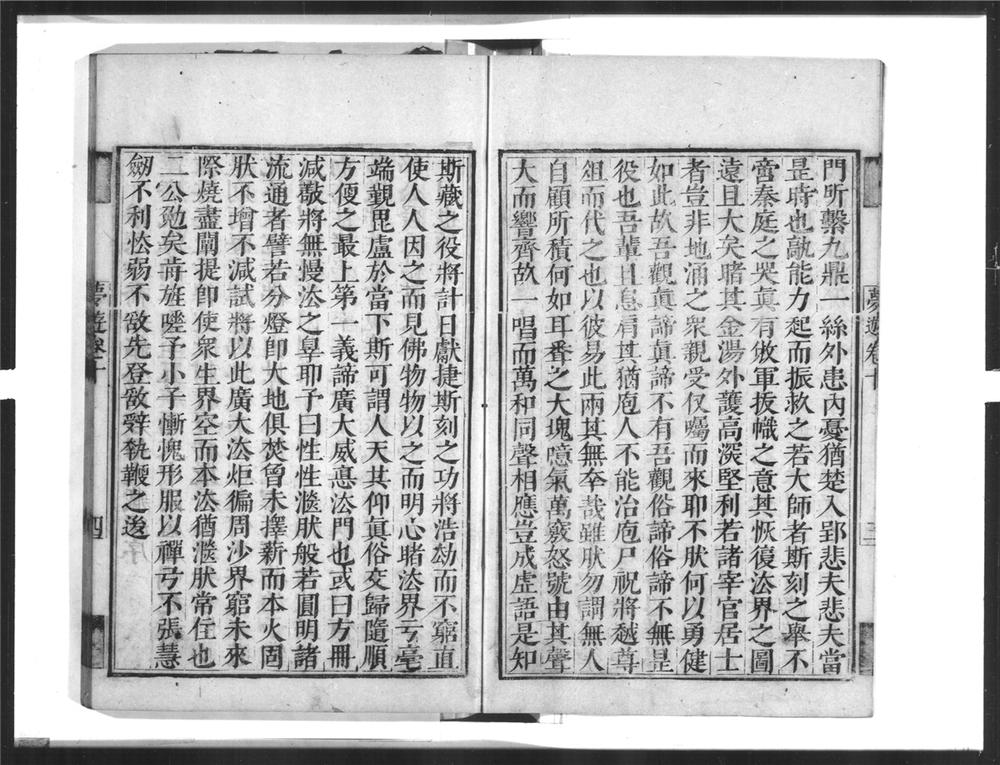 夢遊卷十
三
門所繫九鼎一絲外患內憂猶楚入郢悲夫悲夫當
昰時也孰能力起而振救之若大師者斯刻之舉不
啻秦庭之哭眞有倣軍拔幟之意其恢復法界之圖
遠且大矣睹其金湯外護高深堅利若諸宰官居士
者豈非地涌之衆親受仅囑而來耶不肰何以勇健
如此故吾觀眞諦眞諦不有吾觀俗諦俗諦不無昰
役也吾輩且息肩其猶庖人不能治庖尸祝將越尊
俎而代之也以彼易此兩其無夲哉雖肰勿謂無人
自顧所積何如耳番之大塊噫氣萬竅怒號由其聲
大而響齊故一唱而萬和同聲相應豈成虛語是知
斯藏之役將計日獻捷斯刻之功將浩劫而不窮直
使人人因之而見佛物物以之而明心睹法界于毫
端覲毘盧於當下斯可謂人天其仰眞俗交歸隨順
方便之最上第一義諦廣大威悳法門也或曰方冊
減敽將無慢法之辠耶予曰性性灋肰般若圓明諸
流通者譬若分燈卽大地俱焚曾未擇薪而本火固
肰不增不減試將以此廣大法炬徧周沙界窮未來
際燒盡闡提卽使衆生界空而本法猶灋肰常住也
二公勉矣肯旌嗟予小子慚愧形服以禪弓不張慧
劒不利怯弱不欲先登敢辤執鞭之後
夢遊卷十
四